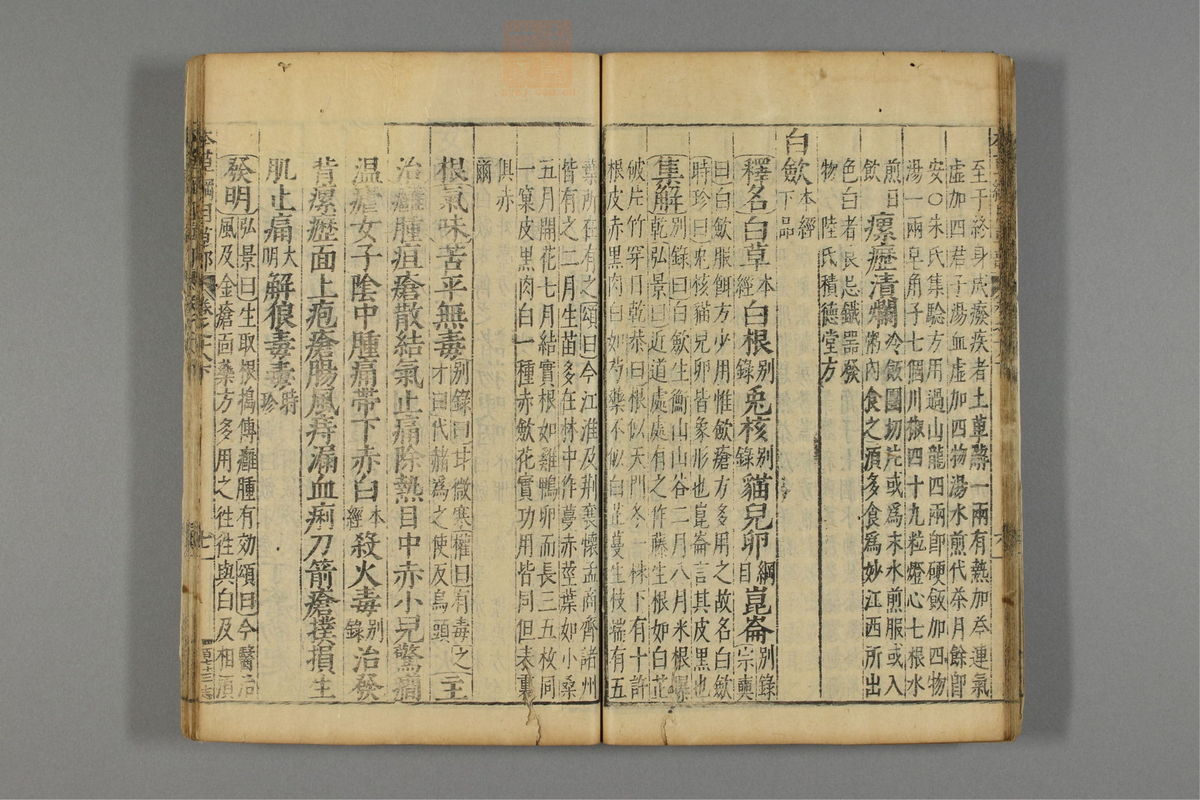 至于終身成癈疾者土萆薢一兩有熱加芩連氣
虛加四君子湯血虛加四物湯水煎代茶月餘卽
安〇朱氏集驗方用過山龍四兩卽硬飯加四物
湯一兩皁角子七個川椒四十九粒燈心七根水
煎日飲瘰癧潰爛冷飯團切片或爲末水煎服或入粥內食之須多食爲妙江西所出
色白者良忌鐵器發
物陸氏積德堂方
白歛本經下品
釋名白草本經白根別錄兎核別錄貓兒卵綱目崑崙別錄宗奭
曰白歛服餌方少用惟歛瘡方多用之故名白歛
時珍曰兎核貓兒卵皆象形也崑崙言其皮黑也
集解別錄曰白歛生衡山山谷二月八月采根曝乾弘景曰近道處處有之作藤生根如白芷
破片竹穿日乾恭曰根似天門冬一株下有十許
根皮赤黑肉白如芍藥不似白芷蔓生枝端有五
葉所在有之頌曰今江淮及荆襄懷孟商齊諸州
皆有之二月生苗多在林中作蔓赤莖葉如小桑
五月開花七月結實根如雞鴨卵而長三五枚同
一窠皮黑肉白一種赤歛花實功用皆同但表裏
俱赤
爾
根氣味苦平無毒別錄曰甘微寒權曰有毒之才曰代赭爲之使反烏頭主
治癰腫疽瘡散結氣止痛除熱目中赤小兒驚癎
温瘧女子陰中腫痛帶下赤白本經殺火毒別錄治發
背瘰癧面上疱瘡腸風痔漏血痢刀箭瘡撲損生
肌止痛大明解狼毒毒時珍
發明弘景曰生取根搗傅癰腫有効頌曰今醫治風及金瘡面藥方多用之往往與白及相須
本草綱目草部
卷之十八
七一